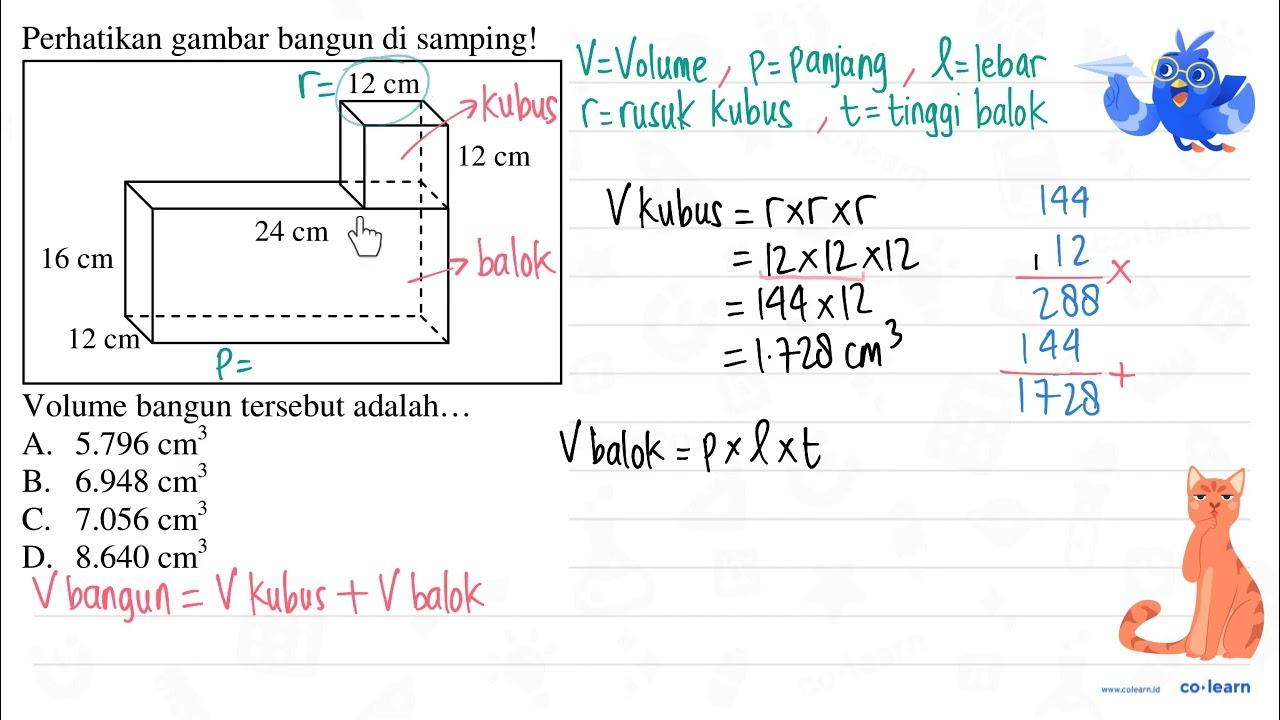 Perhatikan gambar bangun di samping!
r= 12 cm
kubus
12 cm
24 cm
16 cm
balok
12 cm
p=
Volume bangun tersebut adalah…
A. 5.796 cm³
B. 6.948 cm³
C. 7.056 cm³
D. 8.640 cm³
V bangun = V kubus + V balok
V=Volume, p=panjang, l=lebar
r=rusuk kubus, t=tinggi balok
V kubus = r×r×r
= 12×12×12
= 144×12
= 1.728 cm³
144
1 12 ×
288
144 +
1728
V balok = p×l×t
www.colearn.id
co·learn